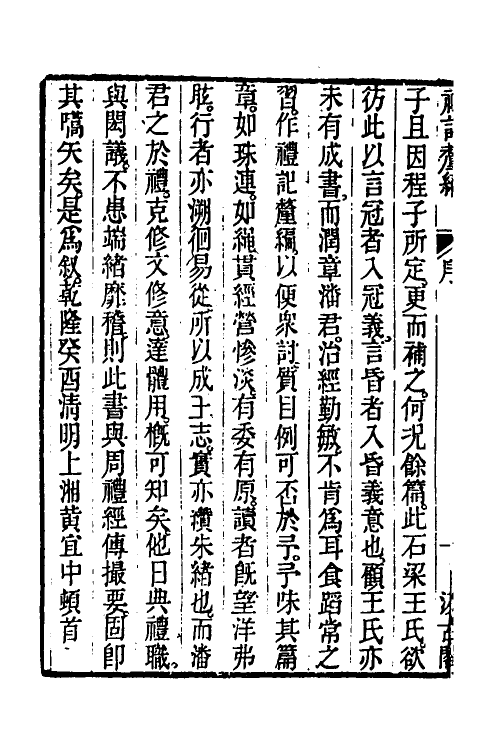 禮記釐編　序
子且因程子所定更而補之何況餘篇此石梁王氏欲
彷此以言冠者入冠義言昏者入昏義意也顧王氏亦
未有成書而潤章潘君治經勤敏不肯為耳食蹈常之
習作禮記釐編以便眾討質目例可否於予予味其篇
章如珠連如繩貫經營慘淡有委有原讀者既望洋弗
眩行者亦溯徊易從所以成王志實亦纘朱緒也而潘
君之於禮克修文修意達體用概可知矣他日典禮職
與閎議不患端緒靡稽則此書與周禮經傳撮要固即
其嚆矢矣是為叙乾隆癸酉清明上湘黃宜中頓首